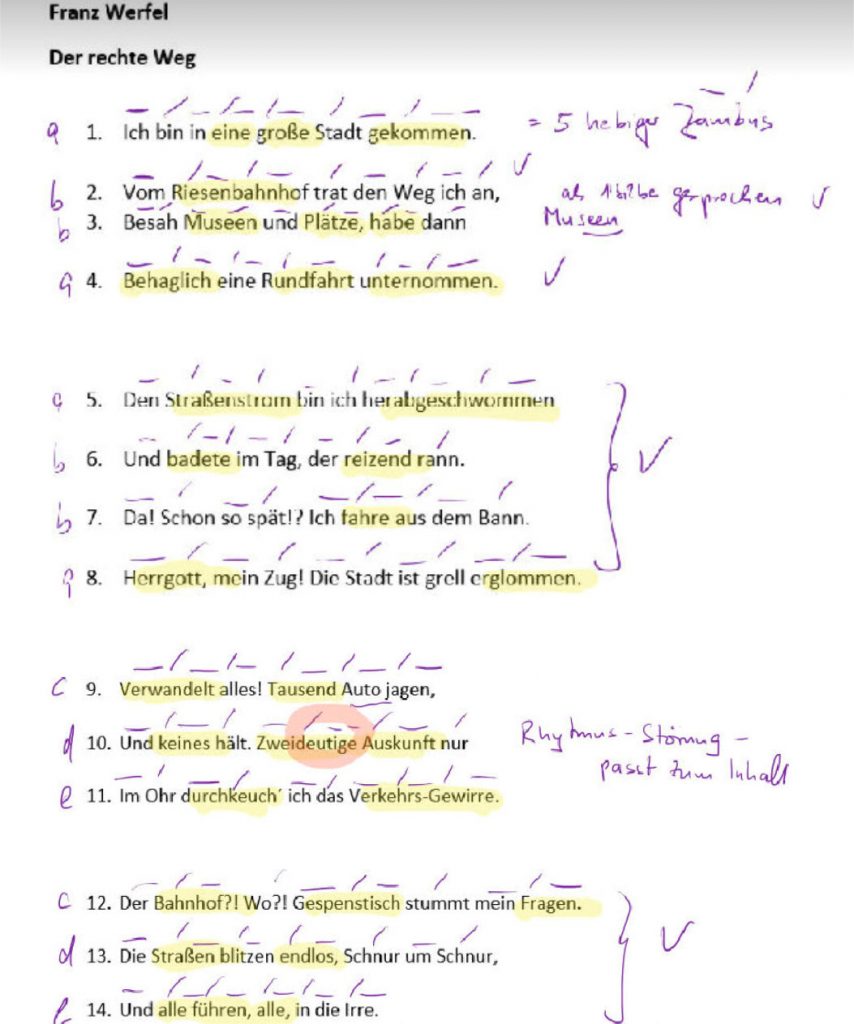 Franz Werfel
Der rechte Weg
a 1. Ich bin in eine große Stadt gekommen. = 5 hebiger Jambus
b 2. Vom Riesenbahnhof trat den Weg ich an, als 1 Silbe gesprochen
b 3. Besah Museen und Plätze, habe dann Museen
a 4. Behaglich eine Rundfahrt unternommen.
a 5. Den Straßenstrom bin ich herabgeschwommen
b 6. Und badete im Tag, der reizend rann.
b 7. Da! Schon so spät!? Ich fahre aus dem Bann.
a 8. Herrgott, mein Zug! Die Stadt ist grell erglommen.
c 9. Verwandelt alles! Tausend Auto jagen,
d 10. Und keines hält. Zweideutige Auskunft nur Rhythmus-Störung -
passt zum Inhalt
e 11. Im Ohr durchkeuch´ ich das Verkehrs-Gewirre.
c 12. Der Bahnhof?! Wo?! Gespenstisch stummt mein Fragen.
d 13. Die Straßen blitzen endlos, Schnur um Schnur,
e 14. Und alle führen, alle, in die Irre.